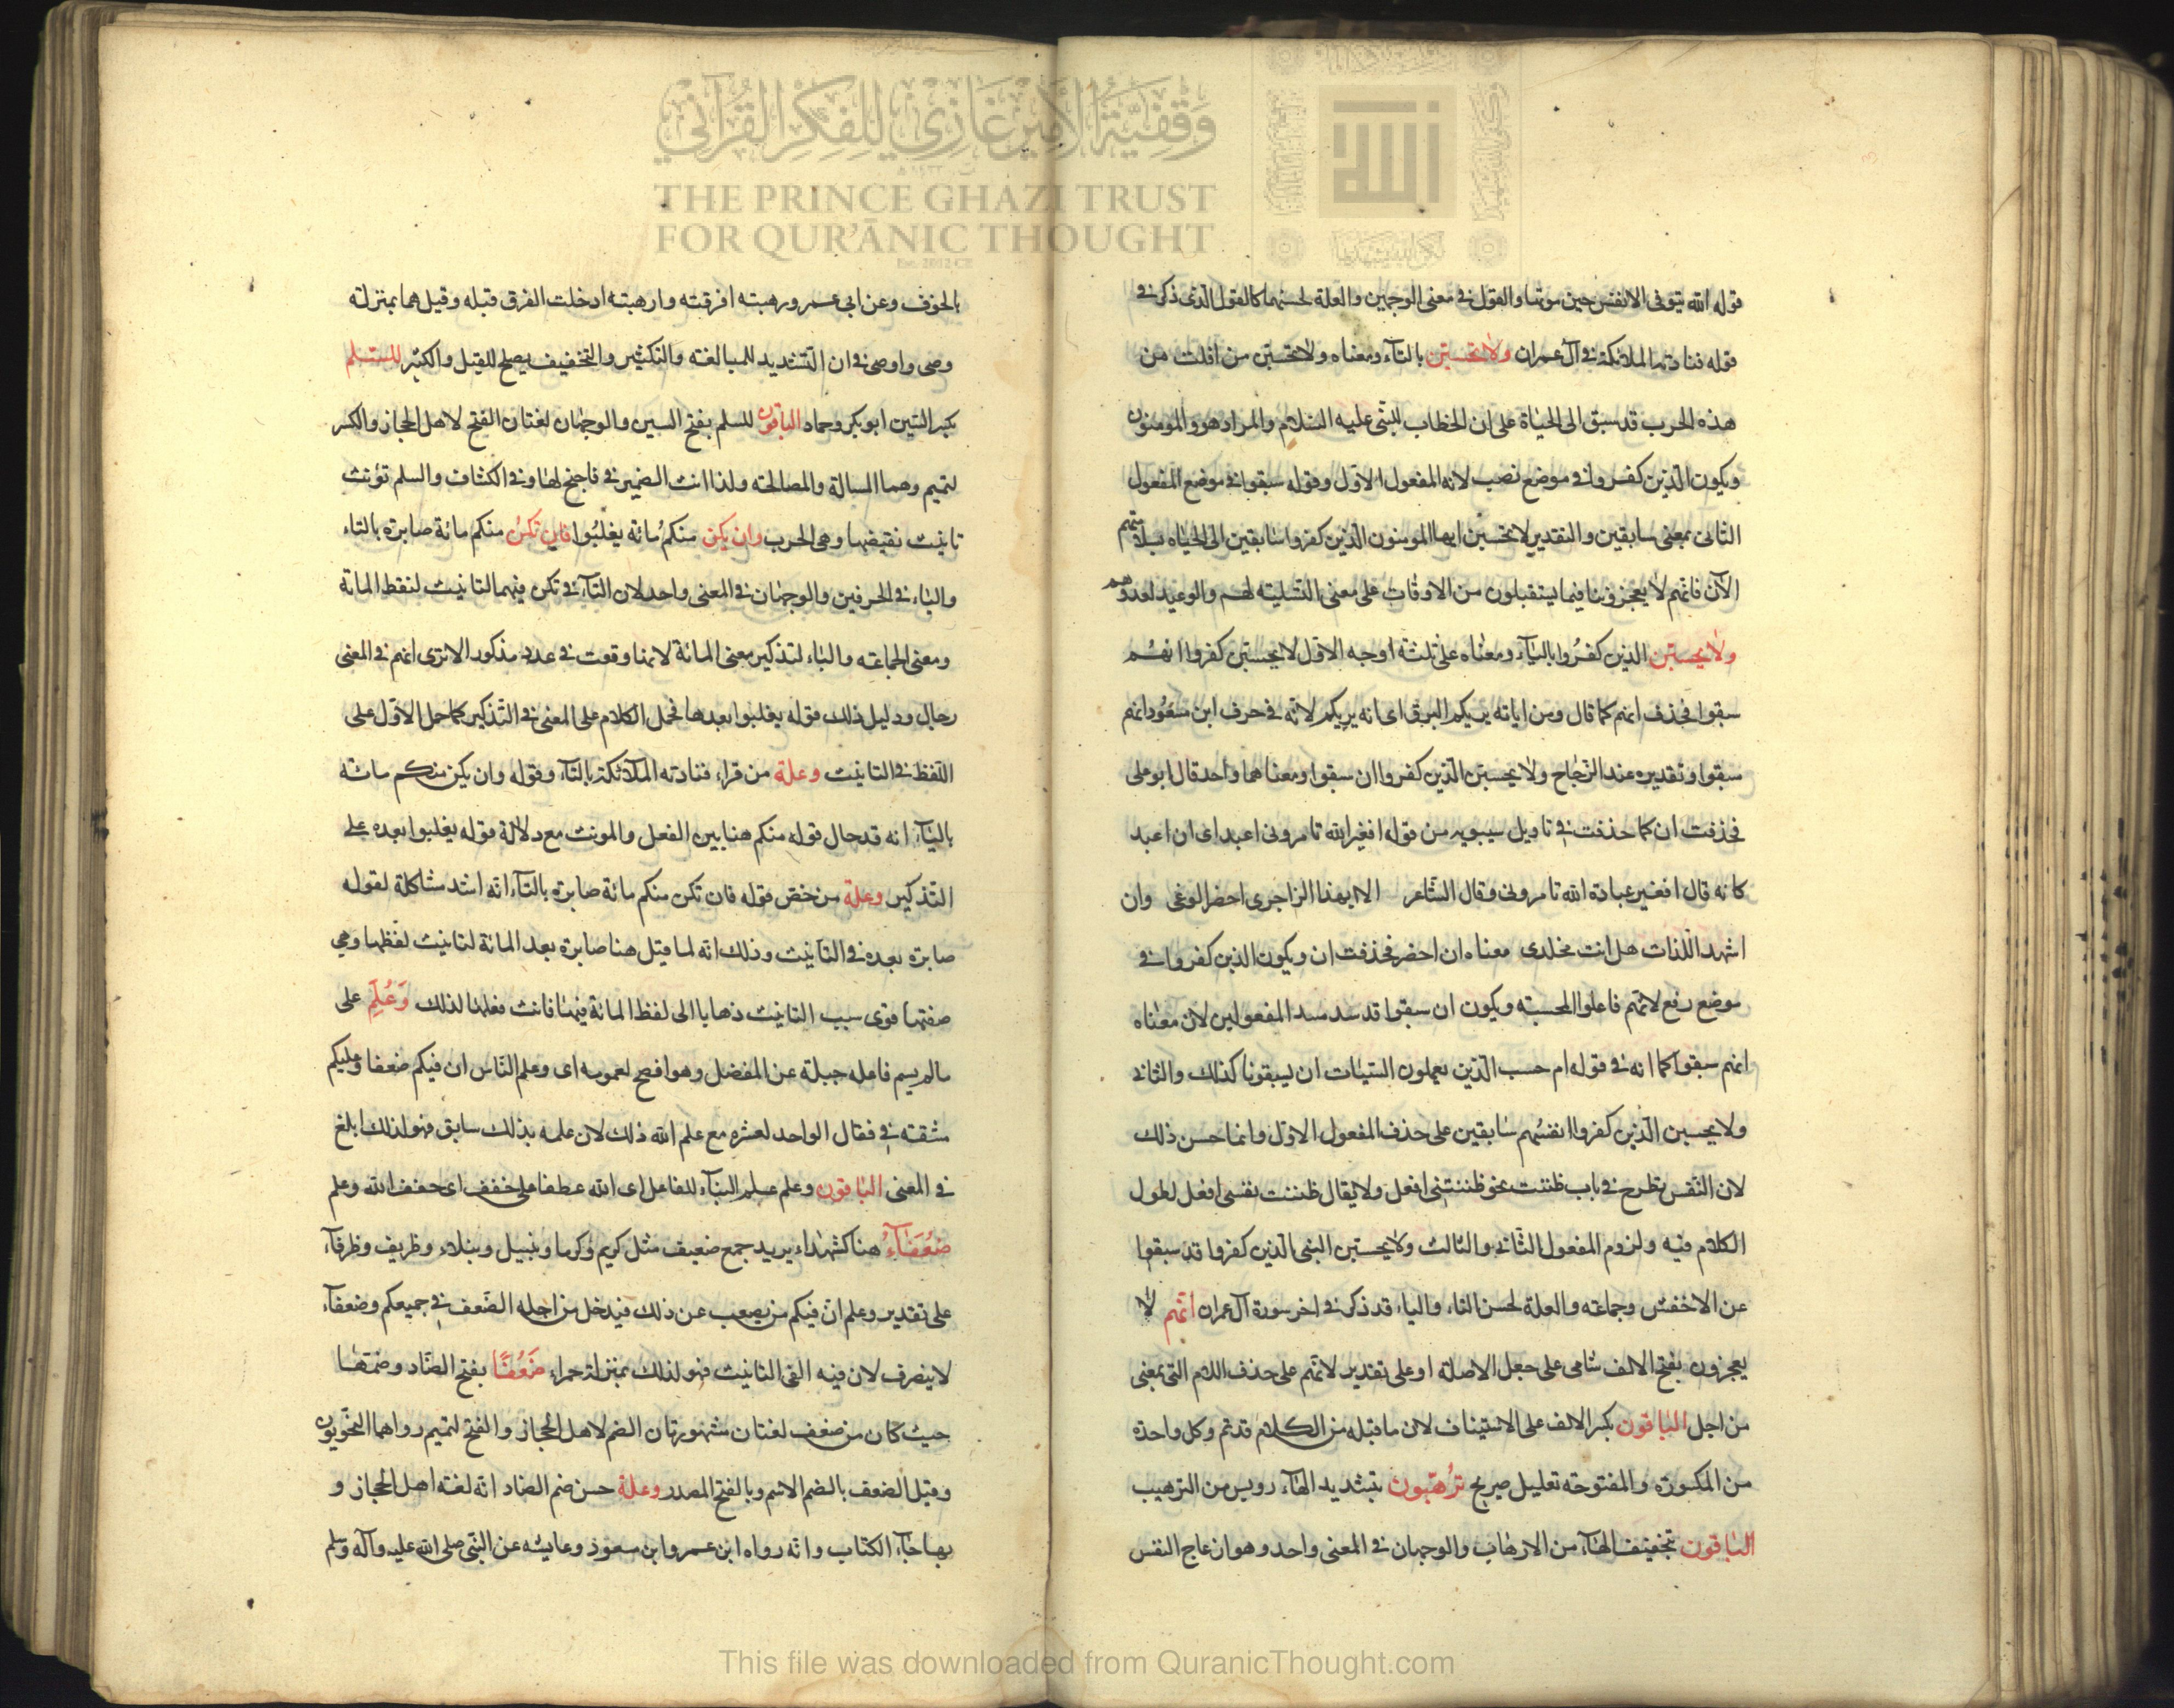 وقفية الأمير غازي للفكر القرآني
THE PRINCE GHAZI TRUST
FOR QUR'ĀNIC THOUGHT
Est. 2012 CE
قوله الله يتوفى الانفس حين موتها والقول في معنى الوجهين والعلة لحسنهما كالقول الذى ذكر في
قوله فنادته الملائكة في آل عمران ولا تحسبن بالتآء ومعناه ولا تحسبن من افلت من
هذه الحرب قد سبق الى الحياة على ان الخطاب للنبى عليه السلام والمراد هو والمومنون
ويكون الذين كفروا في موضع نصب لانه المفعول الاول وقوله سبقوا في موضع المفعول
الثانى بمعنى سابقين والتقدير لا تحسبن ايها المومنون الذين كفروا سابقين الى الحياه بسلامتهم
الآن فانهم لا يعجزوننا فيما يستقبلون من الاوقات على معنى التسلية لهم والوعيد لعدوهم
ولا يحسبن الذين كفروا باليآء ومعناه على ثلثة اوجه الاول لا يحسبن كفروا انهم
سبقوا فحذف انهم كما قال ومن اياته يريكم البرق اى انه يريكم لانه في حرف ابن مسعود انهم
سبقوا وتقديره عند الزجاج ولا يحسبن الذين كفروا ان سبقوا ومعناهما واحد قال ابو على
فحذفت ان كما حذفت في تاويل سيبويه من قوله افغير الله تامرونى اعبد اى ان اعبد
كانه قال افغير عبادة الله تامرونى وقال الشاعر الا ايهذا الزاجرى احضر الوغى وان
اشهد اللذات هل انت مخلدى معناه ان احضر فحذفت ان ويكون الذين كفروا في
موضع رفع لانهم فاعلوا المحسبة ويكون ان سبقوا قد سد مسد المفعولين لان معناه
انهم سبقوا كما انه في قوله ام حسب الذين يعملون السيئات ان يسبقونا كذلك والثانى
ولا يحسبن الذين كفروا انفسهم سابقين على حذف المفعول الاول وانما حسن ذلك
لان النفس تطرح في باب ظننت نحو ظننتنى افعل ولا يقال ظننت نفسى افعل لطول
الكلام فيه ولزوم المفعول الثانى والثالث ولا يحسبن النبى الذين كفروا قد سبقوا
عن الاخفش وجماعته والعلة لحسن التاء والياء قد ذكر في اخر سورة آل عمران انهم لا
يعجزون بفتح الالف شامى على جعل لا صلة او على تقدير لانهم على حذف اللام التى بمعنى
من اجل الباقون بكسر الالف على الاستيناف لان ما قبله من الكلام قد تم وكل واحدة
من المكسورة والمفتوحة تعليل صريح تُرهّبون بتشديد الهآء رويس من الترهيب
الباقون بتخفيف الهآء من الارهاب والوجهان في المعنى واحد وهو ازعاج النفس
بالخوف وعن ابى عمرو رهبته افرقته وارهبته ادخلت الفرق قبله وقيل هما بمنزلة
وصى واوصى في ان التشديد للمبالغة والتكثير والتخفيف يصلح للقيل والكثير للسلم
بكسر السين ابو بكر وحماد الباقون للسلم بفتح السين والوجهان لغتان الفتح لاهل الحجاز والكسر
لتميم وهما المسالمة والمصالحة ولذا انث الضمير في فاجنح لها وفى الكشاف والسلم تؤنث
تانيث نقيضها وهى الحرب وان يكن منكم مائة يغلبوا فان تكن منكم مائة صابرة بالتاء
والياء في الحرفين والوجهان في المعنى واحد لان التآء في تكن فيهما لتانيث لفظ المائة
ومعنى الجماعة والياء لتذكير معنى المائة لانها وقعت في عدد مذكور الا ترى انهم في المعنى
رجال ودليل ذلك قوله يغلبوا بعدها فحمل الكلام على المعنى في التذكير كما حمل الاول على
اللفظ في التانيث وعلة من قراء فنادته الملائكة بالتآء وقوله وان يكن منكم مائة
باليآء انه قد حال قوله منكم هنا بين الفعل والمونث مع دلالة قوله يغلبوا بعده على
التذكير وعلة من خص قوله فان تكن منكم مائة صابرة بالتآء انه اشد مشاكلة لقوله
صابرة بعده في التآنيث وذلك انه لما قيل هنا صابرة بعد المائة لتانيث لفظها وهى
صفتها قوى سبب التانيث ذهابا الى لفظ المائة فيها فانث فعلها لذلك وَعُلِمَ على
ما لم يسم فاعله جبلة عن المفضل وهو افصح لعمومه اى وعلم الناس ان فيكم ضعفا وعليكم
مشقة في فقال الواحد لعشره مع علم الله ذلك لان علمه بذلك سابق فهو لذلك ابلغ
في المعنى الباقون وعلم على البنآء للفاعل اى الله عطفا على خفف اى خفف الله وعلم
ضُعَفَآءَ هنا كشهداء يريد جمع ضعيف مثل كريم وكرما ونبيل ونبلاء وظريف وظرفآء
على تقدير وعلم ان فيكم من يصعب عن ذلك فيدخل من اجله الضعف في جميعكم وضعفآء
لا ينصرف لان فيه الفى التانيث فهو لذلك بمنزلة حمراء ضَعُفًا بفتح الضاد وضمها
حيث كان من ضعف لغتان مشهورتان الضم لاهل الحجاز والفتح لتميم رواهما النحويون
وقيل الضعف بالضم الاسم وبالفتح المصدر وعلة حسن ضم الضاد انه لغة اهل الحجاز و
بها جآء الكتاب وانه رواه ابن عمر وابن مسعود وعايشه عن النبى صلى الله عليه وآله وسلم
This file was downloaded from QuranicThought.com